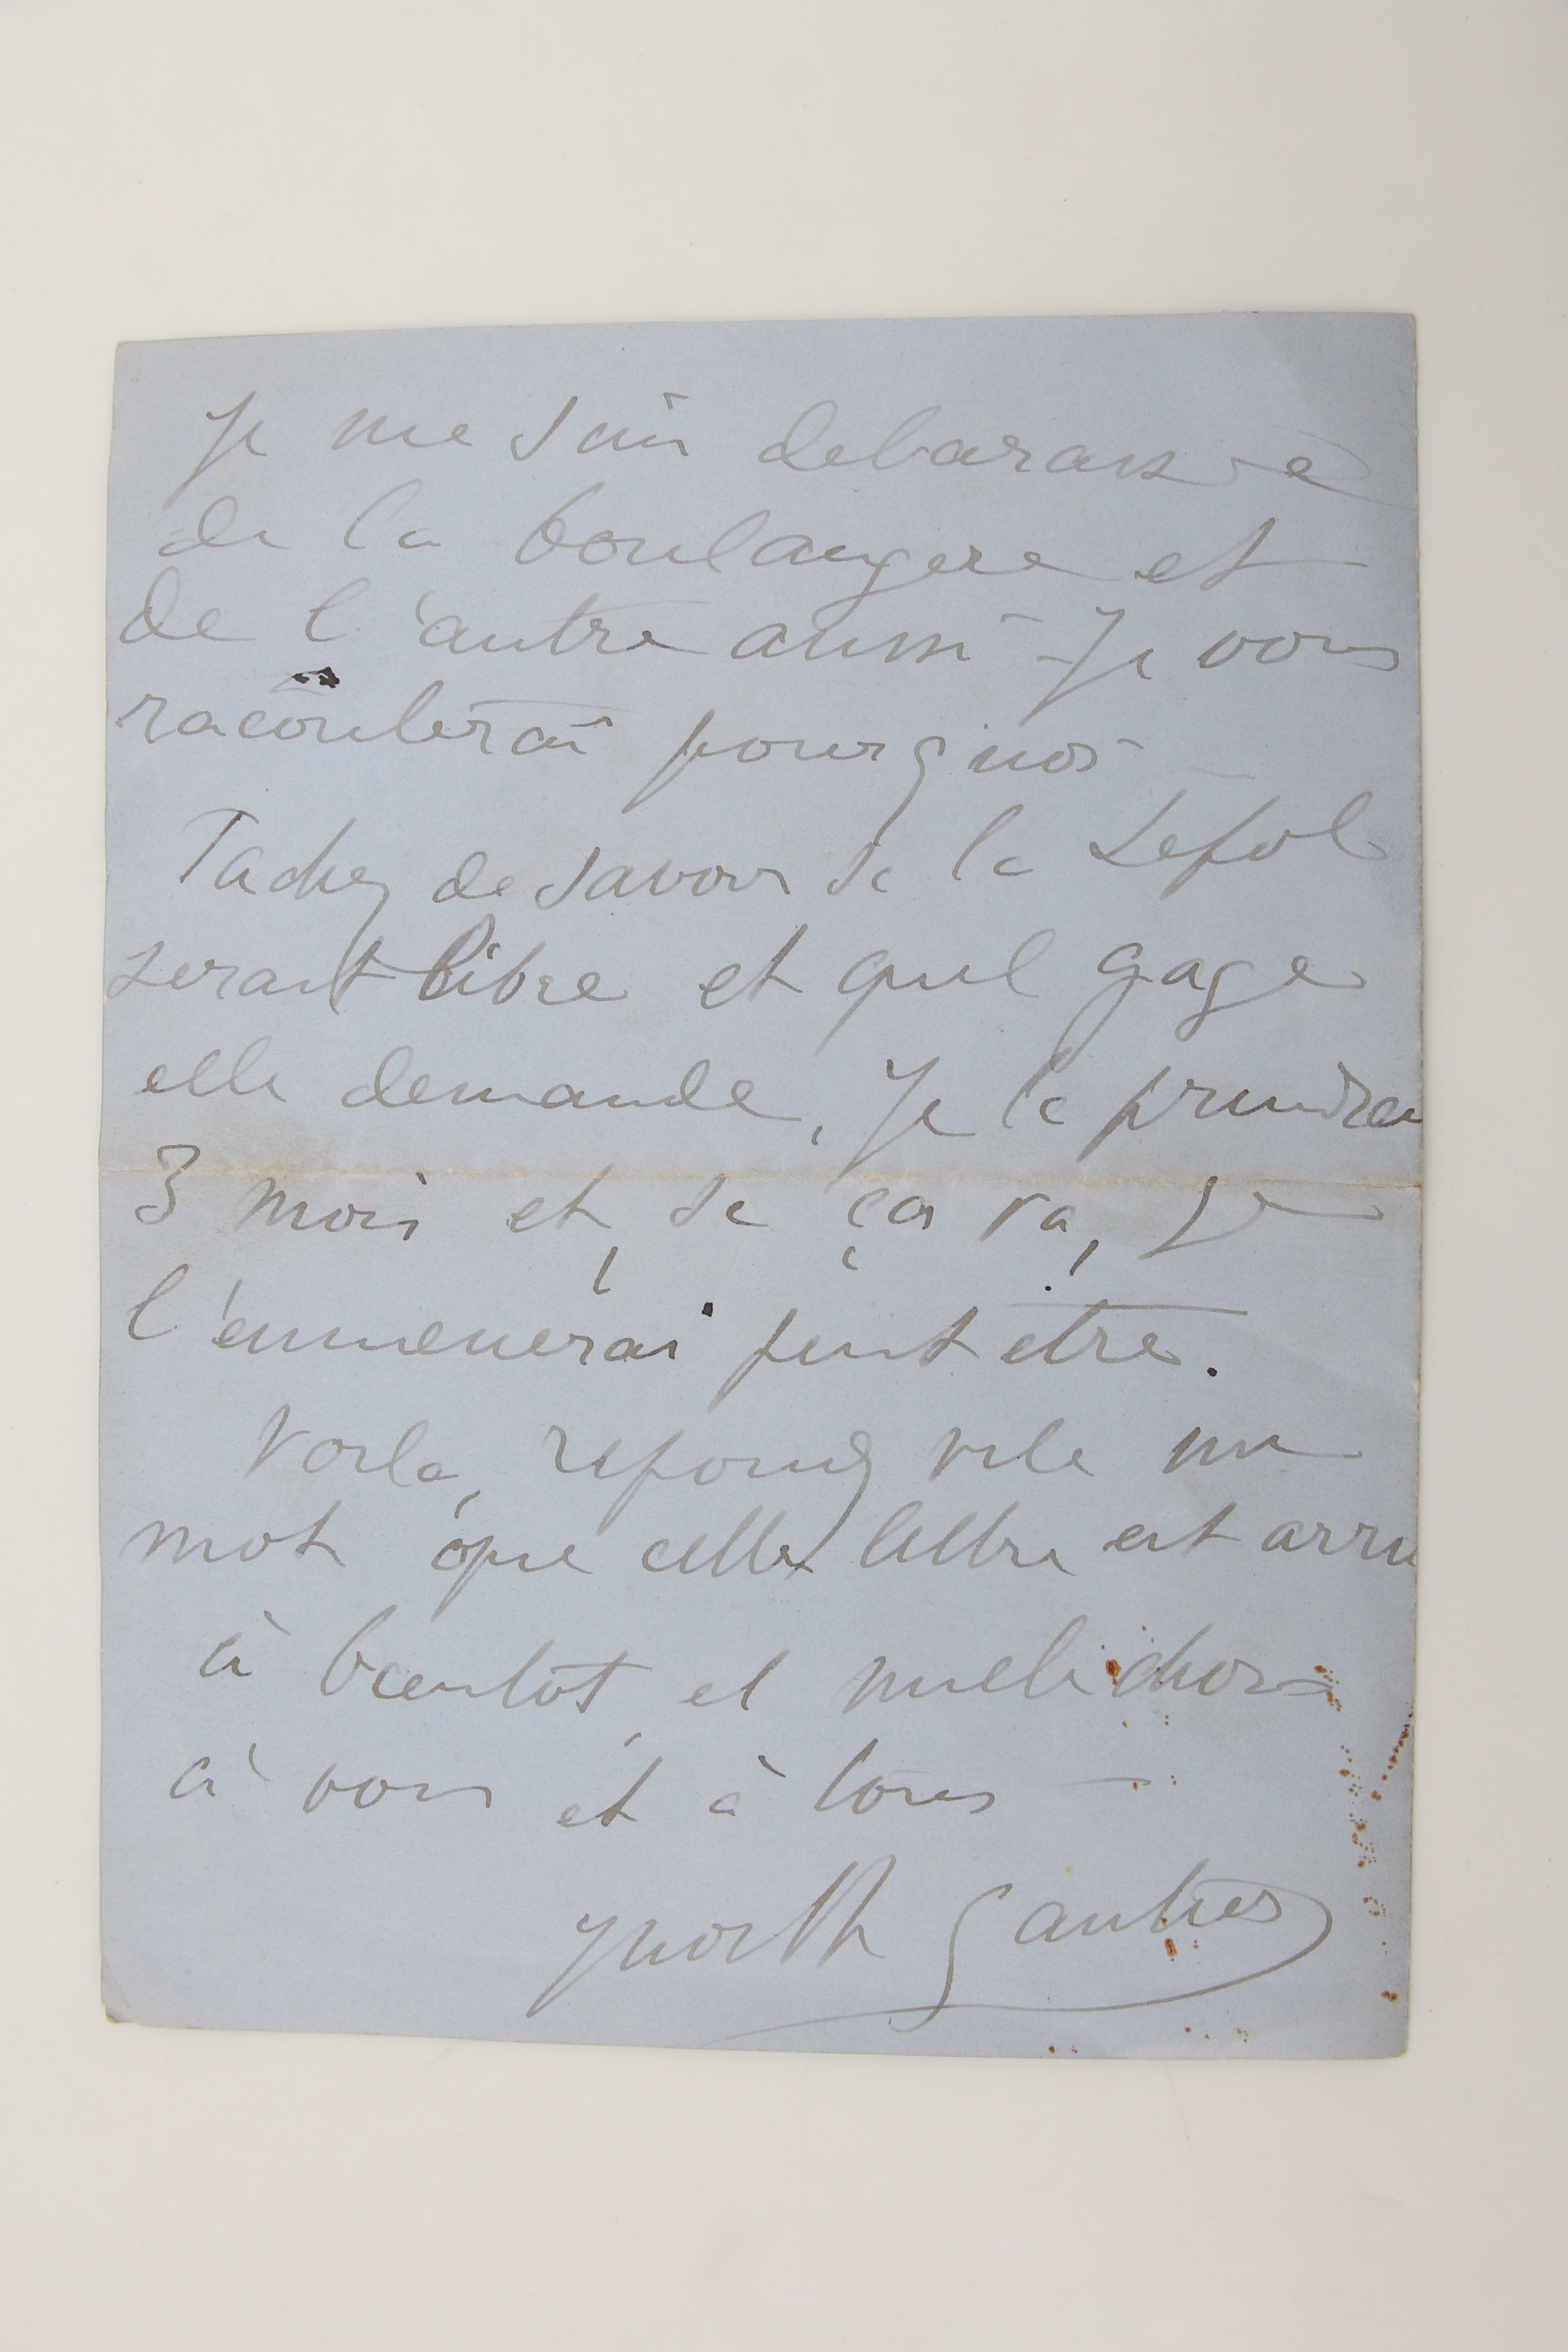 Je me suis debarassé
de la boulangere et
de l'autre aussi - Je vous
raconterai pourquoi -
Tachez de savoir si la Lefol
serait libre et quel gage
elle demande, Je la prendrai
3 mois et, si ça va, Je
l'emmenerai peut etre.
Voila, repondez vite un
mot que cette lettre est arri
à bientot, et mille choses
à vous et à tous -
Judith Gautier